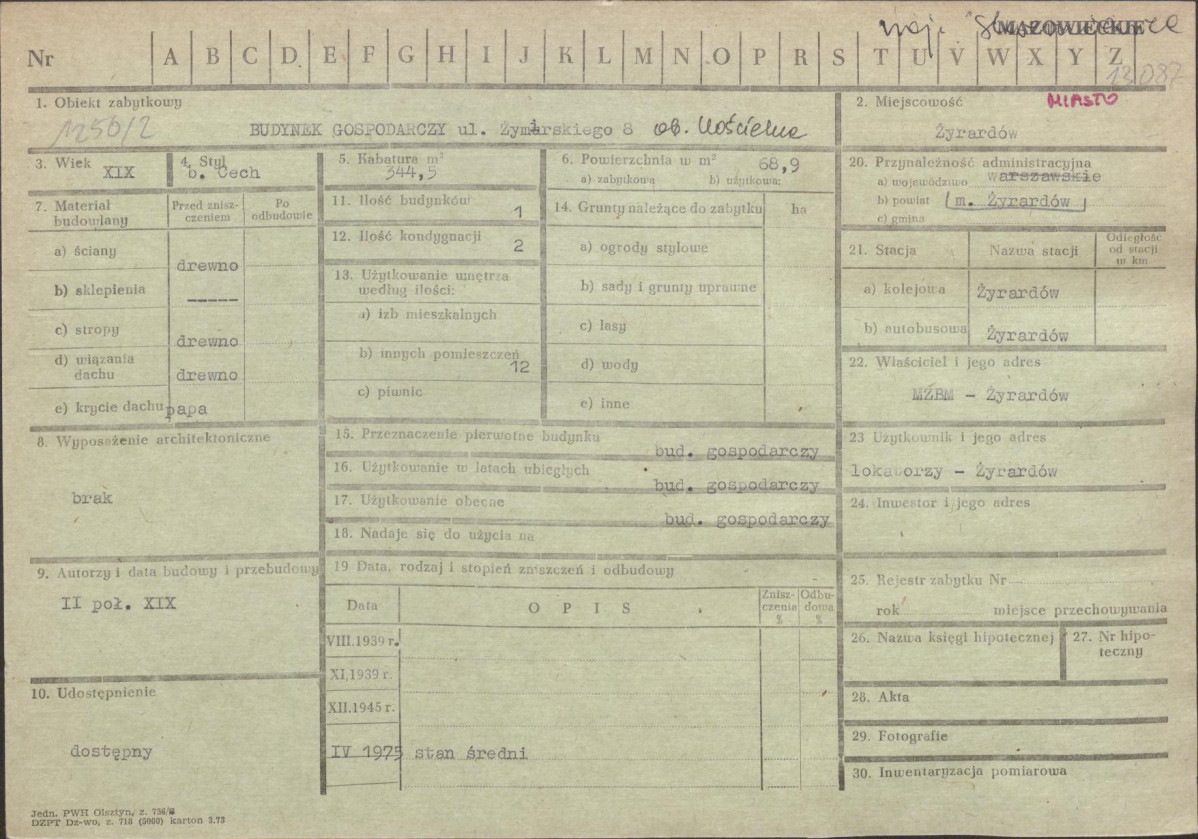 woj. MAZOWIECKIE
Nr A B C D E F G H I J K L M N O P R S T U V W X Y Z
13.087
1. Obiekt zabytkowy
1250/2
BUDYNEK GOSPODARCZY ul. Żymirskiego 8 ob. Kościelna
2. Miejscowość MIASTO
Żyrardów
3. Wiek
XIX
4. Styl
b. Cech
5. Kabatura m³
344,5
6. Powierzchnia w m² 68,9
a) zabytkową b) użytkowa:
7. Materiał budowlany
Przed zniszczeniem
Po odbudowie
a) ściany
drewno
b) sklepienia
-----
c) stropy
drewno
d) wiązania dachu
drewno
e) krycie dachu papa
8. Wyposażenie architektoniczne
brak
9. Autorzy i data budowy i przebudowy
II poł. XIX
10. Udostępnienie
dostępny
11. Ilość budynków 1
12. Ilość kondygnacji 2
13. Użytkowanie wnętrza
według ilości:
a) izb mieszkalnych
b) innych pomieszczeń
12
c) piwnic
14. Grunty należące do zabytku ha
a) ogrody stylowe
b) sady i grunty uprawne
c) lasy
d) wody
e) inne
15. Przeznaczenie pierwotne budynku
bud. gospodarczy
16. Użytkowanie w latach ubiegłych
bud. gospodarczy
17. Użytkowanie obecne
bud. gospodarczy
18. Nadaje się do użycia na
19 Data, rodzaj i stopień zniszczeń i odbudowy
Data
O P I S
Zniszczenia %
Odbudowa %
VIII.1939 r.
XI.1939 r.
XII.1945 r.
IV 1975 stan średni
20. Przynależność administracyjna
a) województwo warszawskie
b) powiat m. Żyrardów
c) gmina
21. Stacja
Nazwa stacji
Odległość od stacji w km
a) kolejowa Żyrardów
b) autobusowa Żyrardów
22. Właściciel i jego adres
MZBM - Żyrardów
23 Użytkownik i jego adres
lokatorzy - Żyrardów
24. Inwestor i jego adres
25. Rejestr zabytku Nr
rok miejsce przechowywania
26. Nazwa księgi hipotecznej
27. Nr hipoteczny
28. Akta
29. Fotografie
30. Inwentaryzacja pomiarowa
Jedn. PWH Olsztyn, z. 736/B
DZPT Dz-wo, z. 718 (5000) karton 3.73